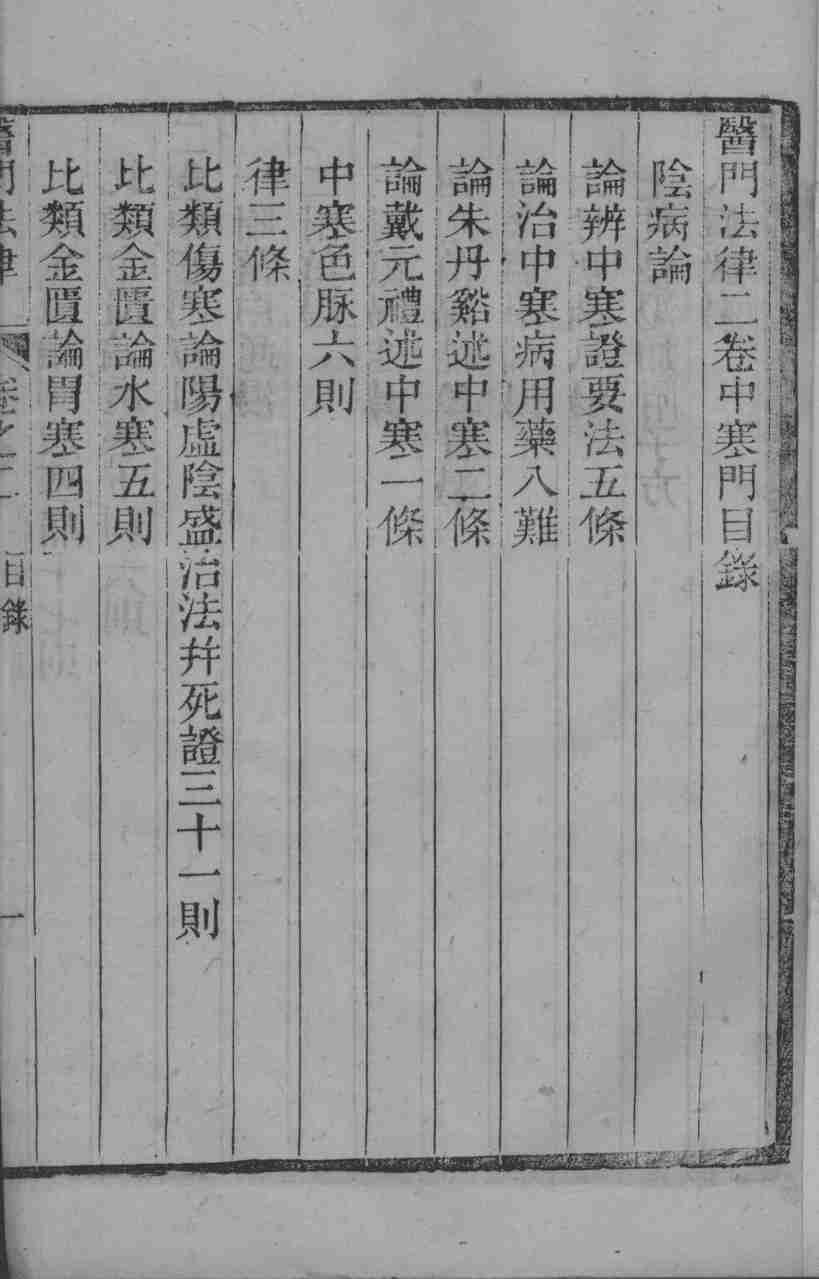 醫門法律二卷中寒門目錄
陰病論
論辨中寒證要法五條
論治中寒病用藥八難
論朱丹谿述中寒二條
論戴元禮述中寒一條
中寒色脉六則
律三條
比類傷寒論陽虛陰盛治法幷死證三十一則
比類金匱論水寒五則
比類金匱論胃寒四則
醫門法律 卷之二 目錄 一